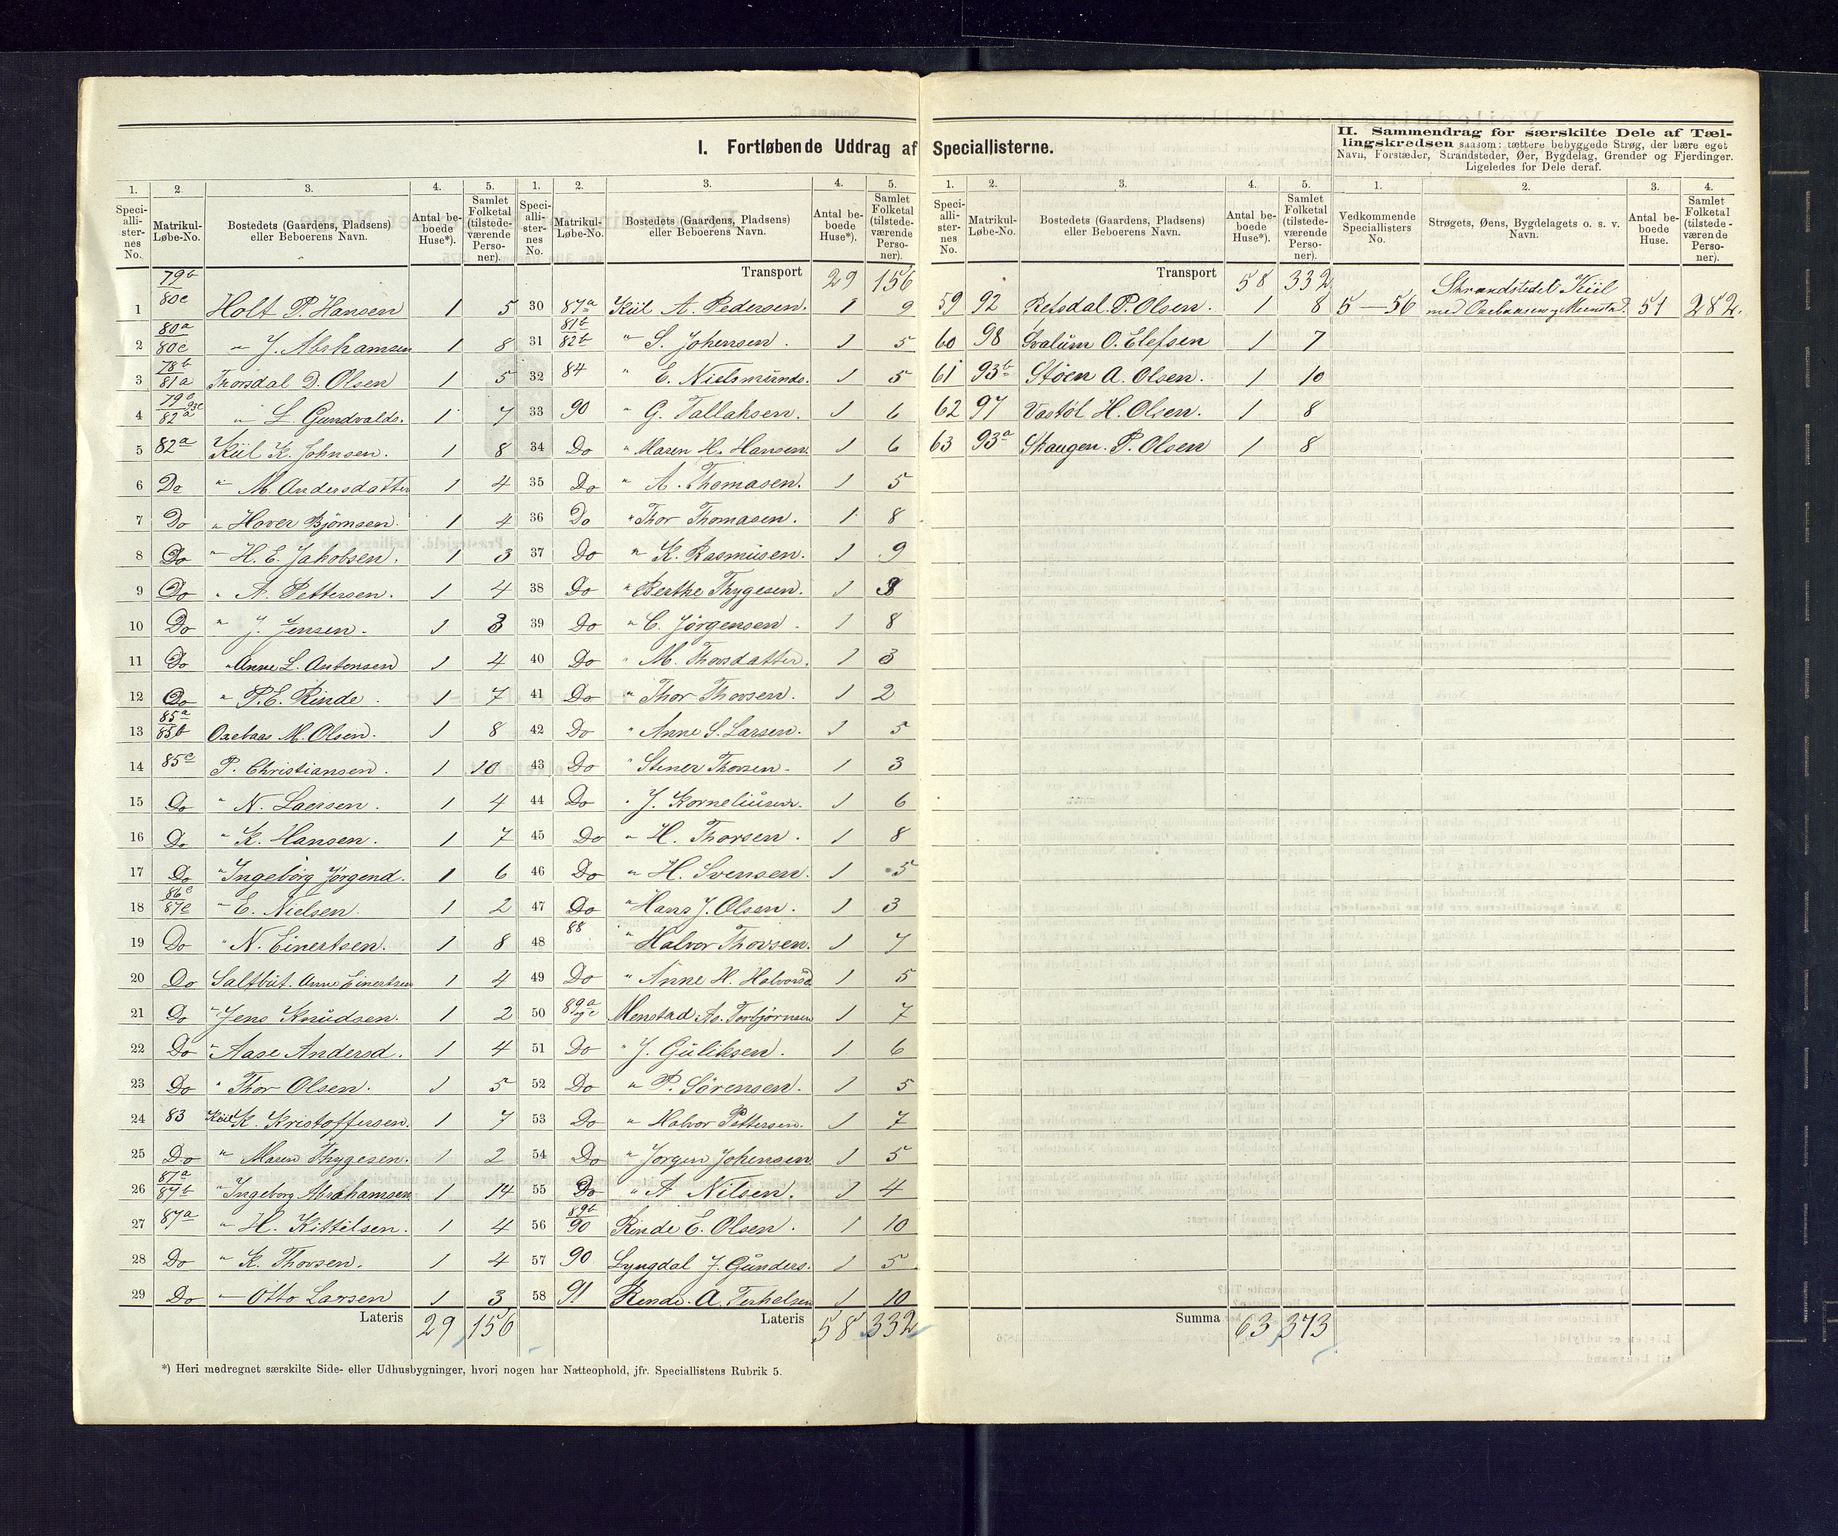 I. Fortløbende Uddrag af Speciallisterne.
II. Sammendrag for særskilte Dele af Tællingskredsen saasom: tættere bebyggede Strøg, der bære eget
Navn, Forstæder, Strandsteder, Øer, Bygdelag, Grender og Fjerdinger.
Ligeledes for Dele deraf.
1. 2. 3. 4. 5. 1. 2. 3. 4. 5. 1. 2. 3. 4. 5. 1. 2. 3. 4.
Speciallisternes No. Matrikul-Løbe-No. Bostedets (Gaardens, Pladsens) eller Beboerens Navn. Antal beboede Huse*). Samlet Folketal (tilstedeværende Personer).
Speciallisternes No. Matrikul-Løbe-No. Bostedets (Gaardens, Pladsens) eller Beboerens Navn. Antal beboede Huse*). Samlet Folketal (tilstedeværende Personer).
Speciallisternes No. Matrikul-Løbe-No. Bostedets (Gaardens, Pladsens) eller Beboerens Navn. Antal beboede Huse*). Samlet Folketal (tilstedeværende Personer).
Vedkommende Speciallisters No. Strøgets, Øens, Bygdelagets o. s. v. Navn. Antal beboede Huse. Samlet Folketal (tilstedeværende Personer).
1 79b/80c Holt P. Hansen 1 5
2 80a/80c " J. Abrahamsen 1 8
3 78b/81a Thorsdal D. Olsen 1 5
4 79c 93c/82a " L. Gundvalds. 1 7
5 82a Kiil K. Johnsen. 1 8
6 Do " M. Andersdatter 1 4
7 Do " Hover Bjørnsen. 1 4
8 Do " H. E. Jakobsen. 1 3
9 Do " A. Pettersen. 1 4
10 Do " J. Jensen. 1 3
11 Do " Anne L. Antonsen 1 4
12 Do " P. E. Rinde. 1 7
13 85a/85b Oaebaas M. Olsen. 1 8
14 85c P. Christiansen. 1 10
15 Do " N. Laersen. 1 4
16 Do " K. Hansen. 1 7
17 Do " Ingeborg Jørgend. 1 6
18 86c/87c " E. Nielsen. 1 2
19 Do " N. Einertsen. 1 8
20 Do Saltbut. Anne Einertsen 1 4
21 Do " Jens Knudsen. 1 2
22 Do " Aase Andersd. 1 4
23 Do " Thor Olsen. 1 5
24 83 Kiil K. Kristoffersen. 1 7
25 Do " Maren Thygesen. 1 2
26 87a/87b " Ingeborg Abrahamsen 1 14
27 87a " H. Kittilsen. 1 4
28 Do " K. Thorsen. 1 4
29 Do " Otto Larsen 1 3
Lateris 29 156
Transport 29 156
30 87a Kiil A. Pedersen. 1 9
31 81b/82b " S. Johensen. 1 5
32 84 " E. Nielsmunds. 1 5
33 90 " G. Tallaksen. 1 6
34 Do " Maren H. Hansen. 1 6
35 Do " A. Thomasen. 1 5
36 Do " Thor Thomasen. 1 8
37 Do " K. Rasmusen. 1 9
38 Do " Berthe Thygesen. 1 3
39 Do " C. Jørgensen. 1 8
40 Do " M. Thorsdatter. 1 3
41 Do " Thor Thorsen. 1 2
42 Do " Anne S. Larsen. 1 5
43 Do " Stener Thorsen. 1 3
44 Do " J. Korneliusen. 1 6
45 Do " H. Thorsen. 1 8
46 Do " H. Svensen. 1 5
47 Do " Hans J. Olsen. 1 3
48 88 " Halvor Thorsen. 1 7
49 Do " Anne H. Halvorsd. 1 5
50 89a og c Menstad As. Torbjørnsen 1 7
51 Do " J. Guliksen. 1 6
52 Do " P. Sørensen. 1 5
53 Do " Halvor Pettersen. 1 7
54 Do " Jørgen Johensen 1 5
55 Do " A. Nilsen. 1 4
56 89b/90 Rinde E. Olsen. 1 10
57 90 Lyngdal J. Gunders. 1 5
58 91 Rinde. A. Terkelsen 1 10
Lateris 58 332
Transport 58 332
59 92 Reisdal P. Olsen. 1 8
60 98 Svalum O. Elefsen 1 7
61 93b Støen A. Olsen. 1 10
62 97 Vastøl H. Olsen. 1 8
63 93a Skaugen. P. Olsen 1 8
Summa 63 373
5—56 Strandstedet Kiil
med Oaebaasen og Menstad. 51 282.
*) Heri medregnet særskilte Side- eller Udhusbygninger, hvori nogen har Natteophold, jfr. Speciallistens Rubrik 5.